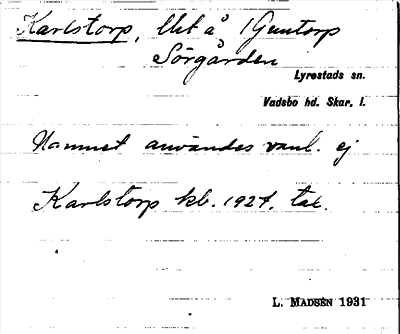 Karlstorp, lht å 1 Guntorp
Sörgården
Lyrestads sn.
Vadsbo hd. Skar. l.
Namnet användes vanl. ej
Karlstorp kb. 1927. tal.
L. MADSÉN 1931